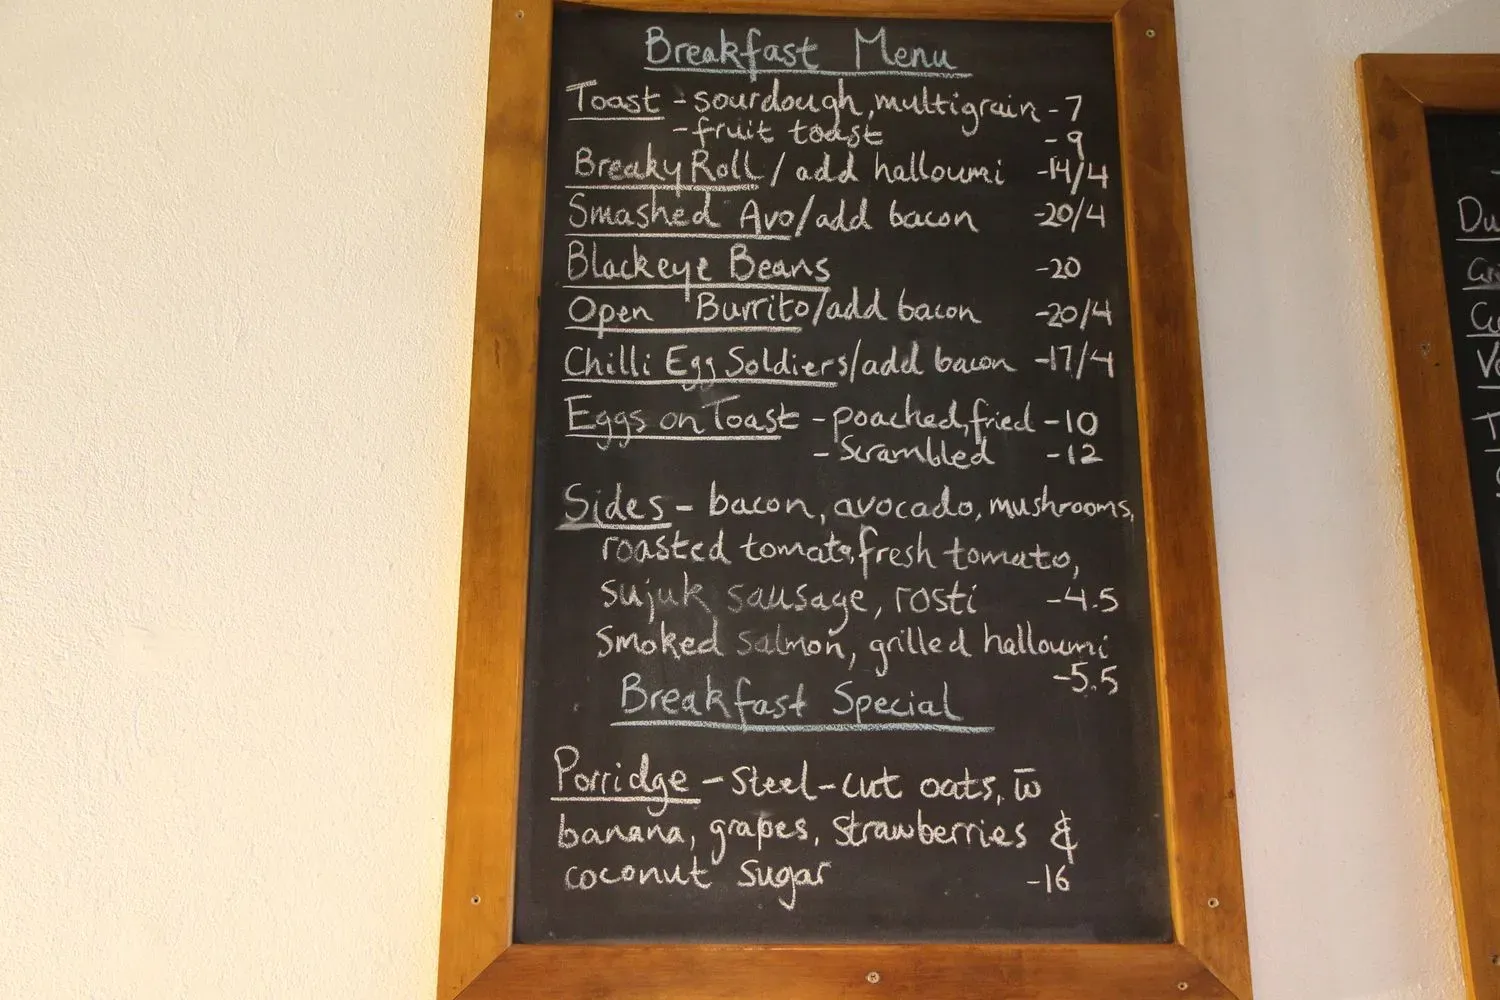 Breakfast Menu
Toast - sourdough, multigrain - 7
- fruit toast - 9
Breaky Roll / add halloumi - 14/4
Smashed Avo/add bacon - 20/4
Blackeye Beans - 20
Open Burrito/add bacon - 20/4
Chilli Egg Soldiers/add bacon - 17/4
Eggs on Toast - poached, fried - 10
- Scrambled - 12
Sides - bacon, avocado, mushrooms,
roasted tomato, fresh tomato,
sujuk sausage, rosti - 4.5
smoked salmon, grilled halloumi
- 5.5
Breakfast Special
Porridge - steel-cut oats, w̄
banana, grapes, strawberries &
coconut sugar - 16